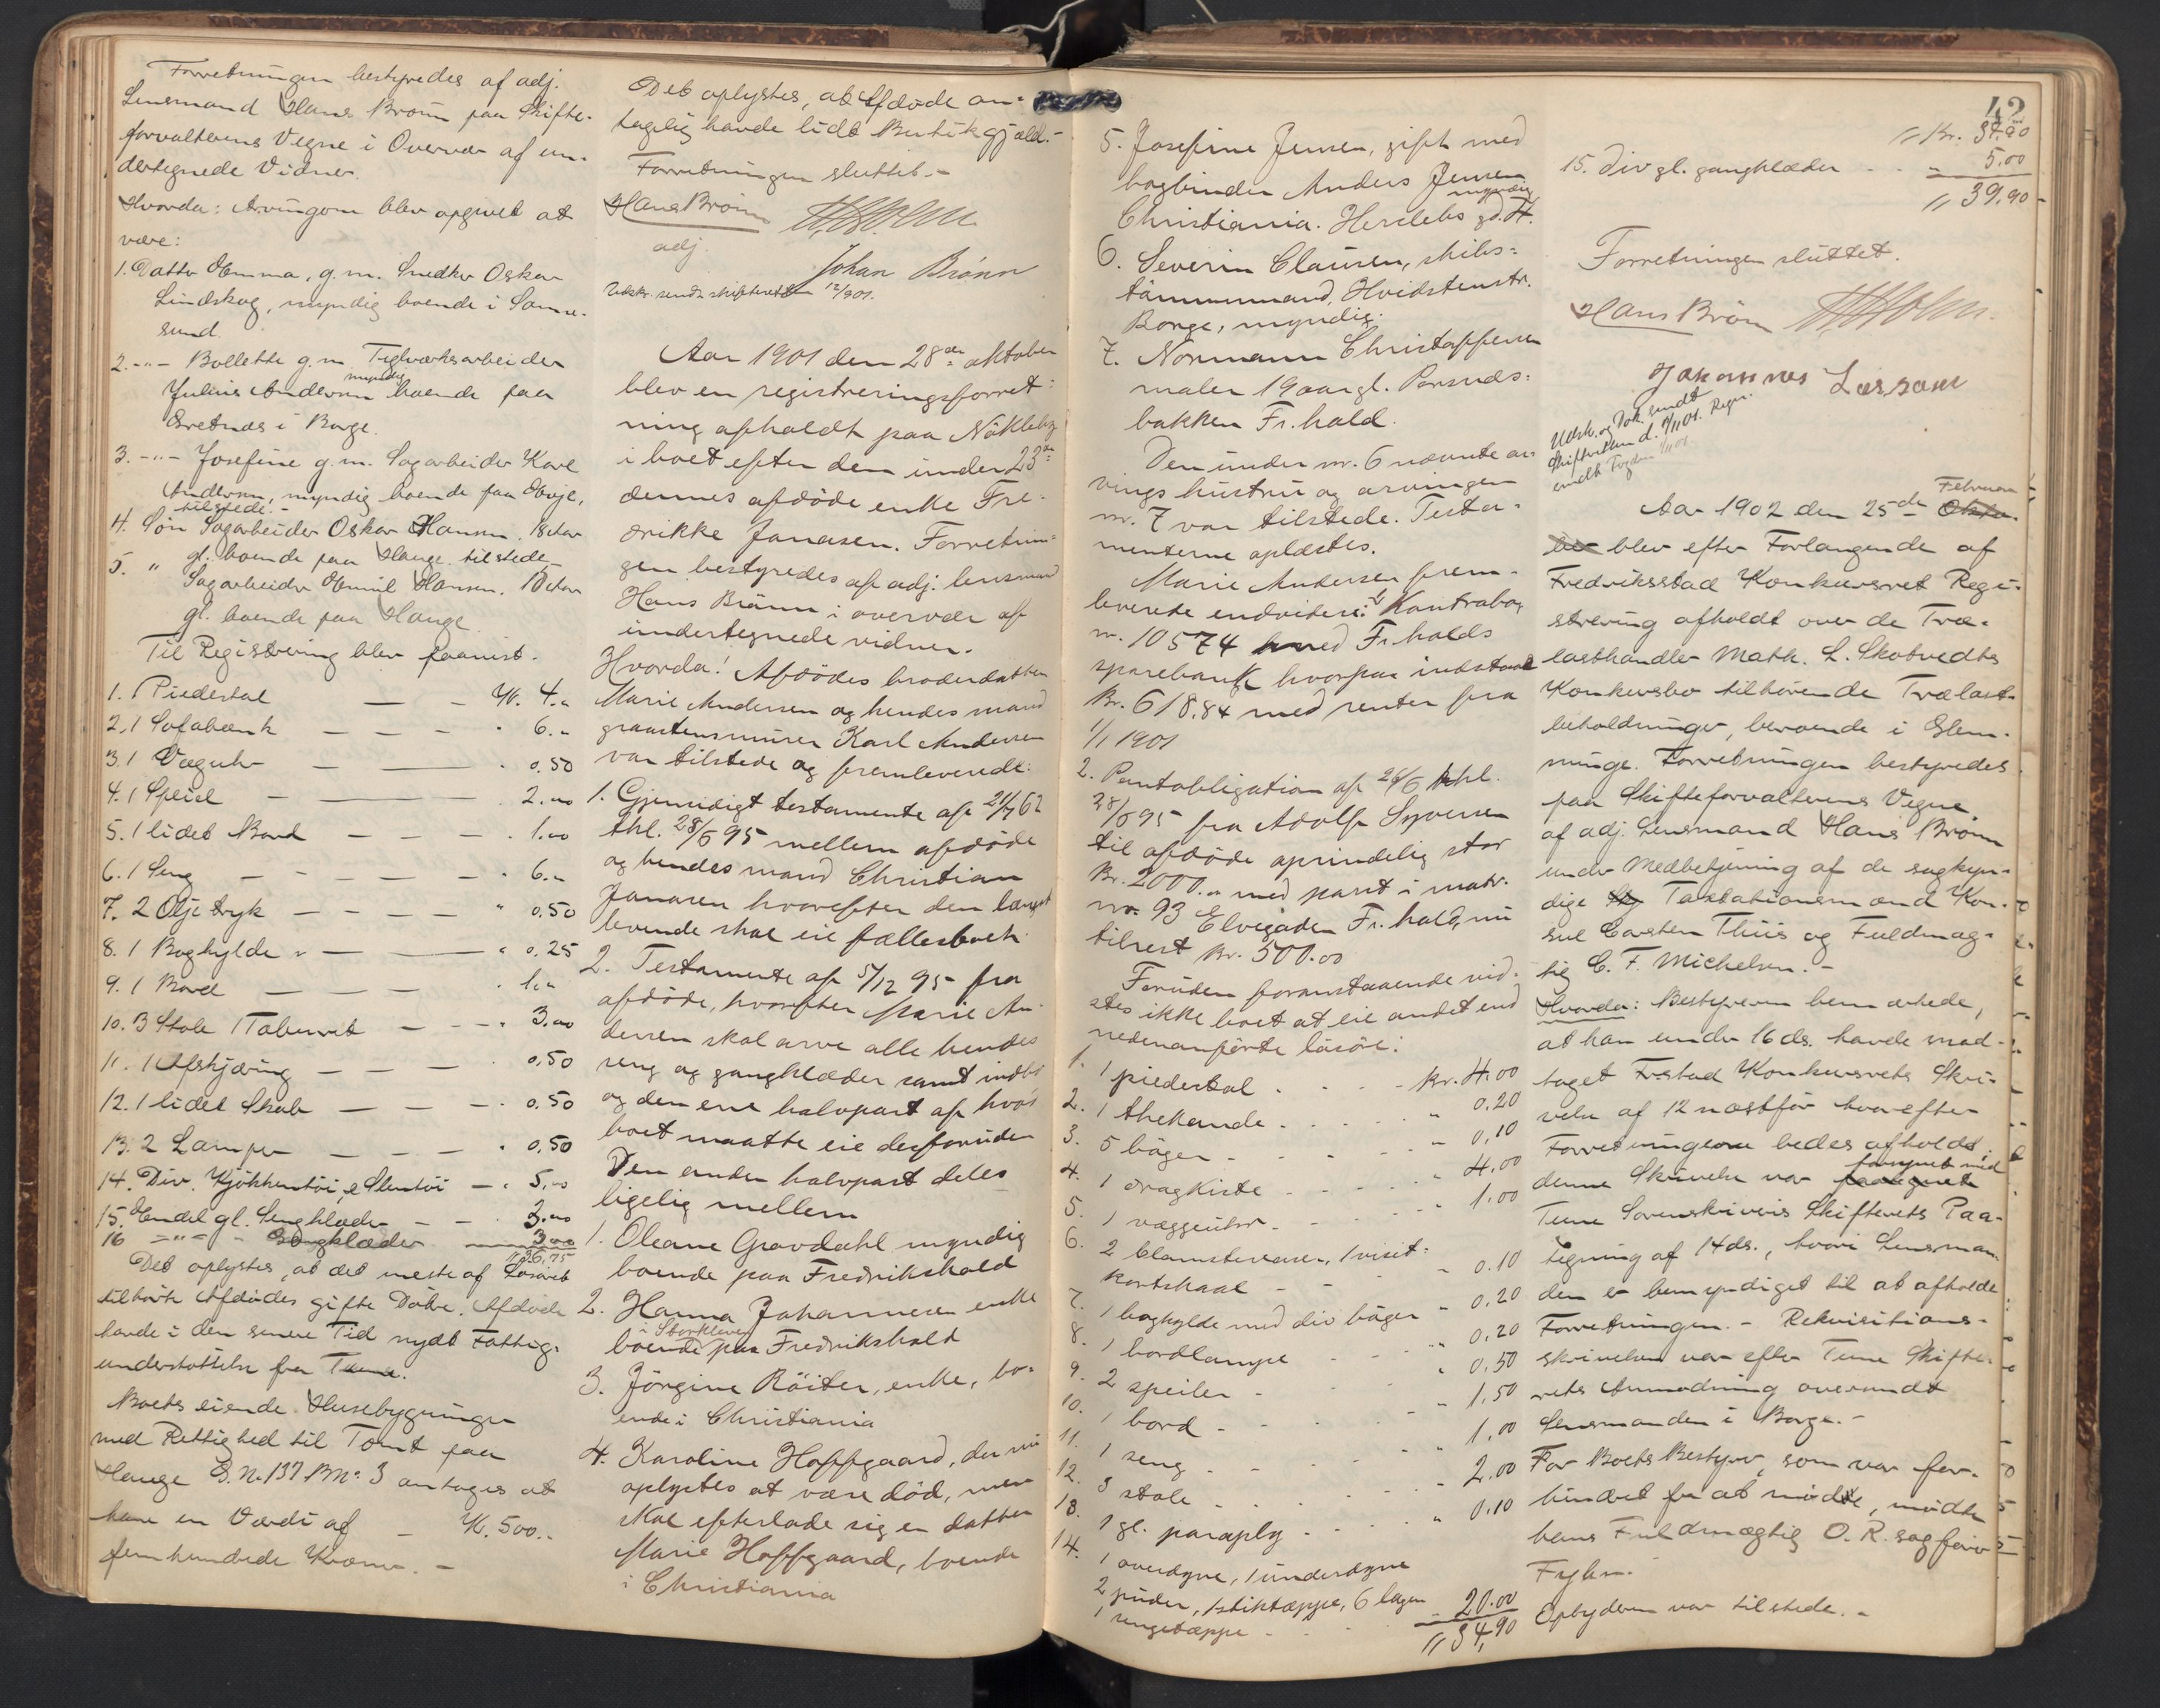 Forretningen bestyredes af adj.
Lensmand Hans Brönn paa Skifte-
forvalterens Vegne i Overvær af un-
dertegnede Vidner.
Hvorda: Arvingerne blev opgivet at
være:
1. Datter Emma, g.m. Snedker Oskar
Lindskog, myndig boende i Sanne-
sund.
2. -"- Bollette g.m. Teglværksarbeider
Julius Andersen myndig boende paa
i Borge.
3. -"- Josefine g.m. Sagarbeider Karl
Andersen, myndig boende paa
tilstede.-
4. Søn Sagarbeider Oskar Hansen. 18 Aar
gl. boende paa Hauge tilstede
5. " Sagarbeider Emil Hansen. Aar
gl. boende paa Hauge.
Til Registrering blev paavist.
1. 1 Piedestal — - Kr. 4.-
2. 1 Sofabænk - - - - 6.-
3. 1 Væguhr - — . 0.50
4. 1 Speil - — 2.00
5. 1 lidet Bord - - - . 1.00
6. 1 Seng - - - - - . 6.-
7. 2 Oljetryk - - - - " 0.50
8. 1 Boghylde - — " 0.25
9. 1 Bord — - - . 1.-
10. 3 Stole 1 Taburet - - . 3.00
11. 1 Afskjæring - - - . 0.50
12. 1 lidet Skab - - - . 0.50
13. 2 Lamper - - - . 0.50
14. Div. Kjökkentöi & Stentöi - . 5.00
15. Endel gl. Sengklæder - - . 3.00
16 -"- - Gangklæder 3.00
" 36.75
Det oplystes, at det meste af Løsøret
tilhørte Afdødes gifte Døtre. Afdøde
havde i den senere Tid nydt Fattig-
understøttelse fra Tune.
Boets eiende Husebygninger
med Rettighed til Tomt paa
Hauge G.N. 137 B.N. 3 antages at
have en Værdi af - Kr. 500.-
femhundrede Kroner. -
Det oplystes, at Afdøde an-
tagelig havde lidt Butikgjæld.-
Forretningen sluttet.-
Hans Brönn
adj.
Holm
Johan Brönn
Udskr. sendt skifteretten 12/9 01.
Aar 1901 den 28de oktober
blev en registreringsforret-
ning afholdt paa Nökleby
i boet efter den under 23de
dennes afdöde enke Fre-
drikke Jonasen. Forretnin-
gen bestyredes af adj. lensmand
Hans Brönn i overvær af
undertegnede vidner.
Hvorda! Afdödes broderdatter
Marie Andersen og hendes mand
graastensmurer Karl Andersen
var tilstede og fremleverede:
1. Gjensidigt testamente af 21/7 62
thl. 28/6 95 mellem afdöde
og hendes mand Christian
Jonasen hvorefter den længst
levende skal eie fællesboet.
2. Testamente af 5/12 95 fra
afdöde, hvorefter Marie An-
dersen skal arve alle hendes
seng og gangklæder samt indbo
og den ene halvpart af hvad
boet maatte eie desforuden
Den anden halvpart deles
ligelig mellem
1. Oleane Gravdahl myndig
boende paa Fredrikshald
2. Hanna Johannesen enke
i Storkleven
boende paa Fredrikshald
3. Jörgine Röiter, enke, bo-
ende i Christiania
4. Karoline Hoffgaard, der nu
oplystes at være död, men
skal efterlade sig en datter
Marie Hoffgaard, boende
i Christiania
42
5. Josefine Jensen, gift med
bogbinder Anders Jensen
myndig
Christiania. Herslebs gd. 7.
6. Severin Clausen, skibs-
tömmermand, Hvidstenstr.
Borge, myndig.
7. Normann Christoffersen
maler 19 aar gl.
bakken Fr.hald.
Den under nr. 6 nævnte ar-
vings hustru og arvingen
nr. 7 var tilstede. Testa-
menterne oplæstes.
Marie Andersen frem-
leverede endvidere: 1/ Kontrabog
nr. 10574 med Fr.halds
sparebank hvorpaa indstaar
Kr. 618.84 med renter fra
1/1 1901
2. Pantobligation af 26/6 thl.
28/6 95 fra Adolf Syversen
til afdöde oprindelig stor
Kr. 2000.00 med pant i matr.
no. 93 Elvegaden Fr.hald, nu
tilrest Kr. 500.00
Foruden foranstaaende vid-
stes ikke boet at eie andet end
nedenanförte lösöre:
1. 1 piedestal . . . - Kr. 4.00
2. 1 thekande . . . . . " 0.20
3. 5 böger - - - - - " 0,10
4. 1 dragkiste . . . . " 4.00
5. 1 væggeuhr . . . . . " 1.00
6. 2 blomstervaser, 1 visit-
kortskaal - - - " 0.10
7. 1 boghylde med div böger " 0.20
8. 1 bordlampe - - - " 0.20
9. 2 speiler - - - - " 0,50
10. 1 bord - - - - - " 1.50
11. 1 seng . . - - - - " 1.00
12. 3 stole . . . . . . - 2.00
13. 1 gl. paraply . . . . . " 0.10
14. 1 overdyne, 1 underdyne
2 puder, 1 stiktæppe, 6 lagen
1 sengetæppe - - . . . - 20.00
" 34,90
" Kr. 34.90
15. Div gl. gangklæder . . - 5.00
" 39.90
Forretningen sluttet.
Hans Brönn Holm.
Johannes Larsson
Udsk. og Dok. sendt
Skifteretten d. 4/11 01. Regn.
sendt Fogden 4/11 01.
Februar
Aar 1902 den 25de Okto-
ber blev efter Forlangende af
Fredriksstad Konkursret Regi-
strering afholdt over de Træ-
lasthandler Math. L. Skotvedts
Konkursbo tilhørende Trælast-
beholdninger, beroende i Glem-
minge. Forretningen bestyredes
paa Skifteforvalterens Vegne
af adj. Lensmand Hans Brönn
under Medbetjening af de sagkyn-
dige Taxtationsmænd Kon-
sul Carsten Thiis og Fuldmæg-
tig C. F. Michelsen. -
Hvorda: Bestyreren bemærkede,
at han under 16 ds. havde mod-
taget Fr.stad Konkursrets Skri-
velse af 12 næstfør hvorefter
Forretningerne bedes afholdt;
forsynet med
denne Skrivelse var paategnet
Tune Sorenskriveris Skifterets Paa-
tegning af 14 ds., hvori Lensman-
den er bemyndiget til at afholde
Forretningen. - Rekvisitions-
skrivelsen var efter Tune Skifte-
rets Anmodning oversendt
Lensmanden i Borge. -
For Boets Bestyrer, som var for-
hindret fra at møde, mødte
hans Fuldmægtig O. R. sagfører
Opbyderen var tilstede. -